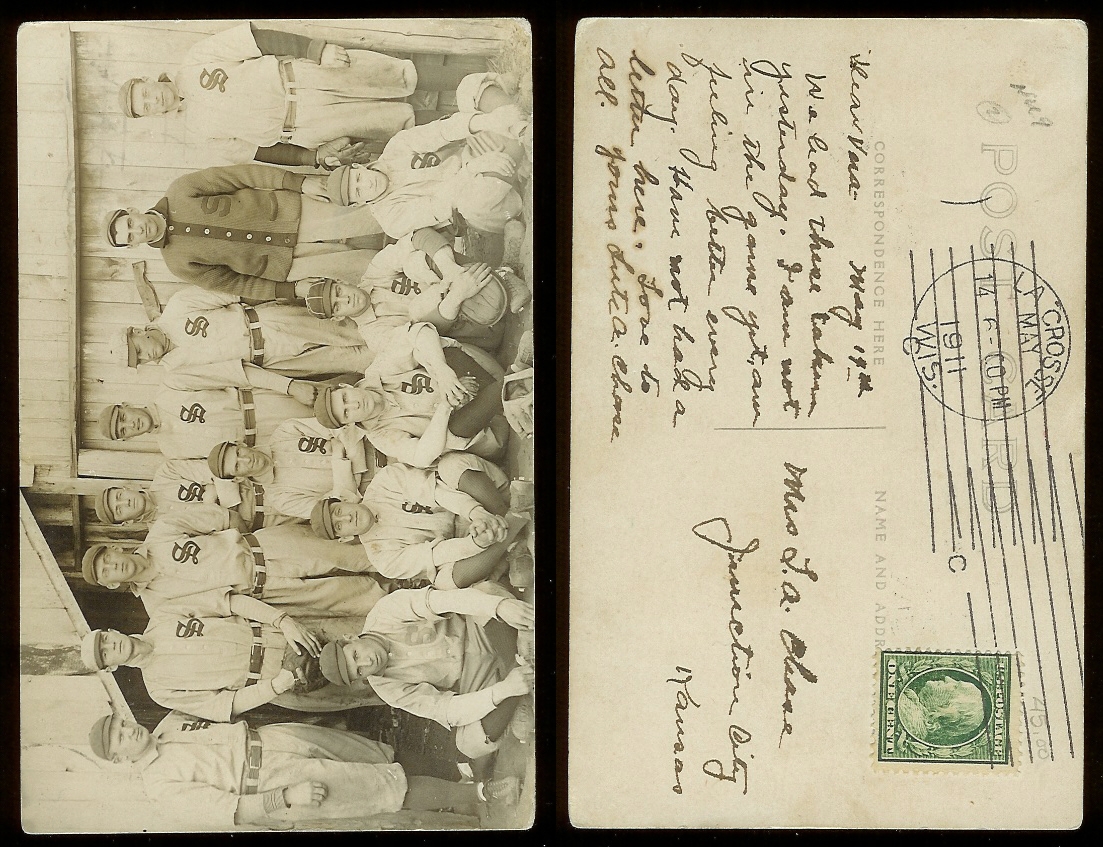 POST CARD
CORRESPONDENCE HERE
NAME AND ADDR
LA CROSSE
MAY 15
6-00 PM
1911
WIS.
C
U.S. POSTAGE
ONE CENT
45.00
Dear Vera- May 14th
We had these taken
yesterday. I am not
in the game yet, am
feeling better every
day. Have not had a
letter here. Love to
all. yours Lute A. Chase
Mrs L. A. Chase
Junction City
Kansas
S
S
S
S
S
S
S
S
S
S
S
S
S